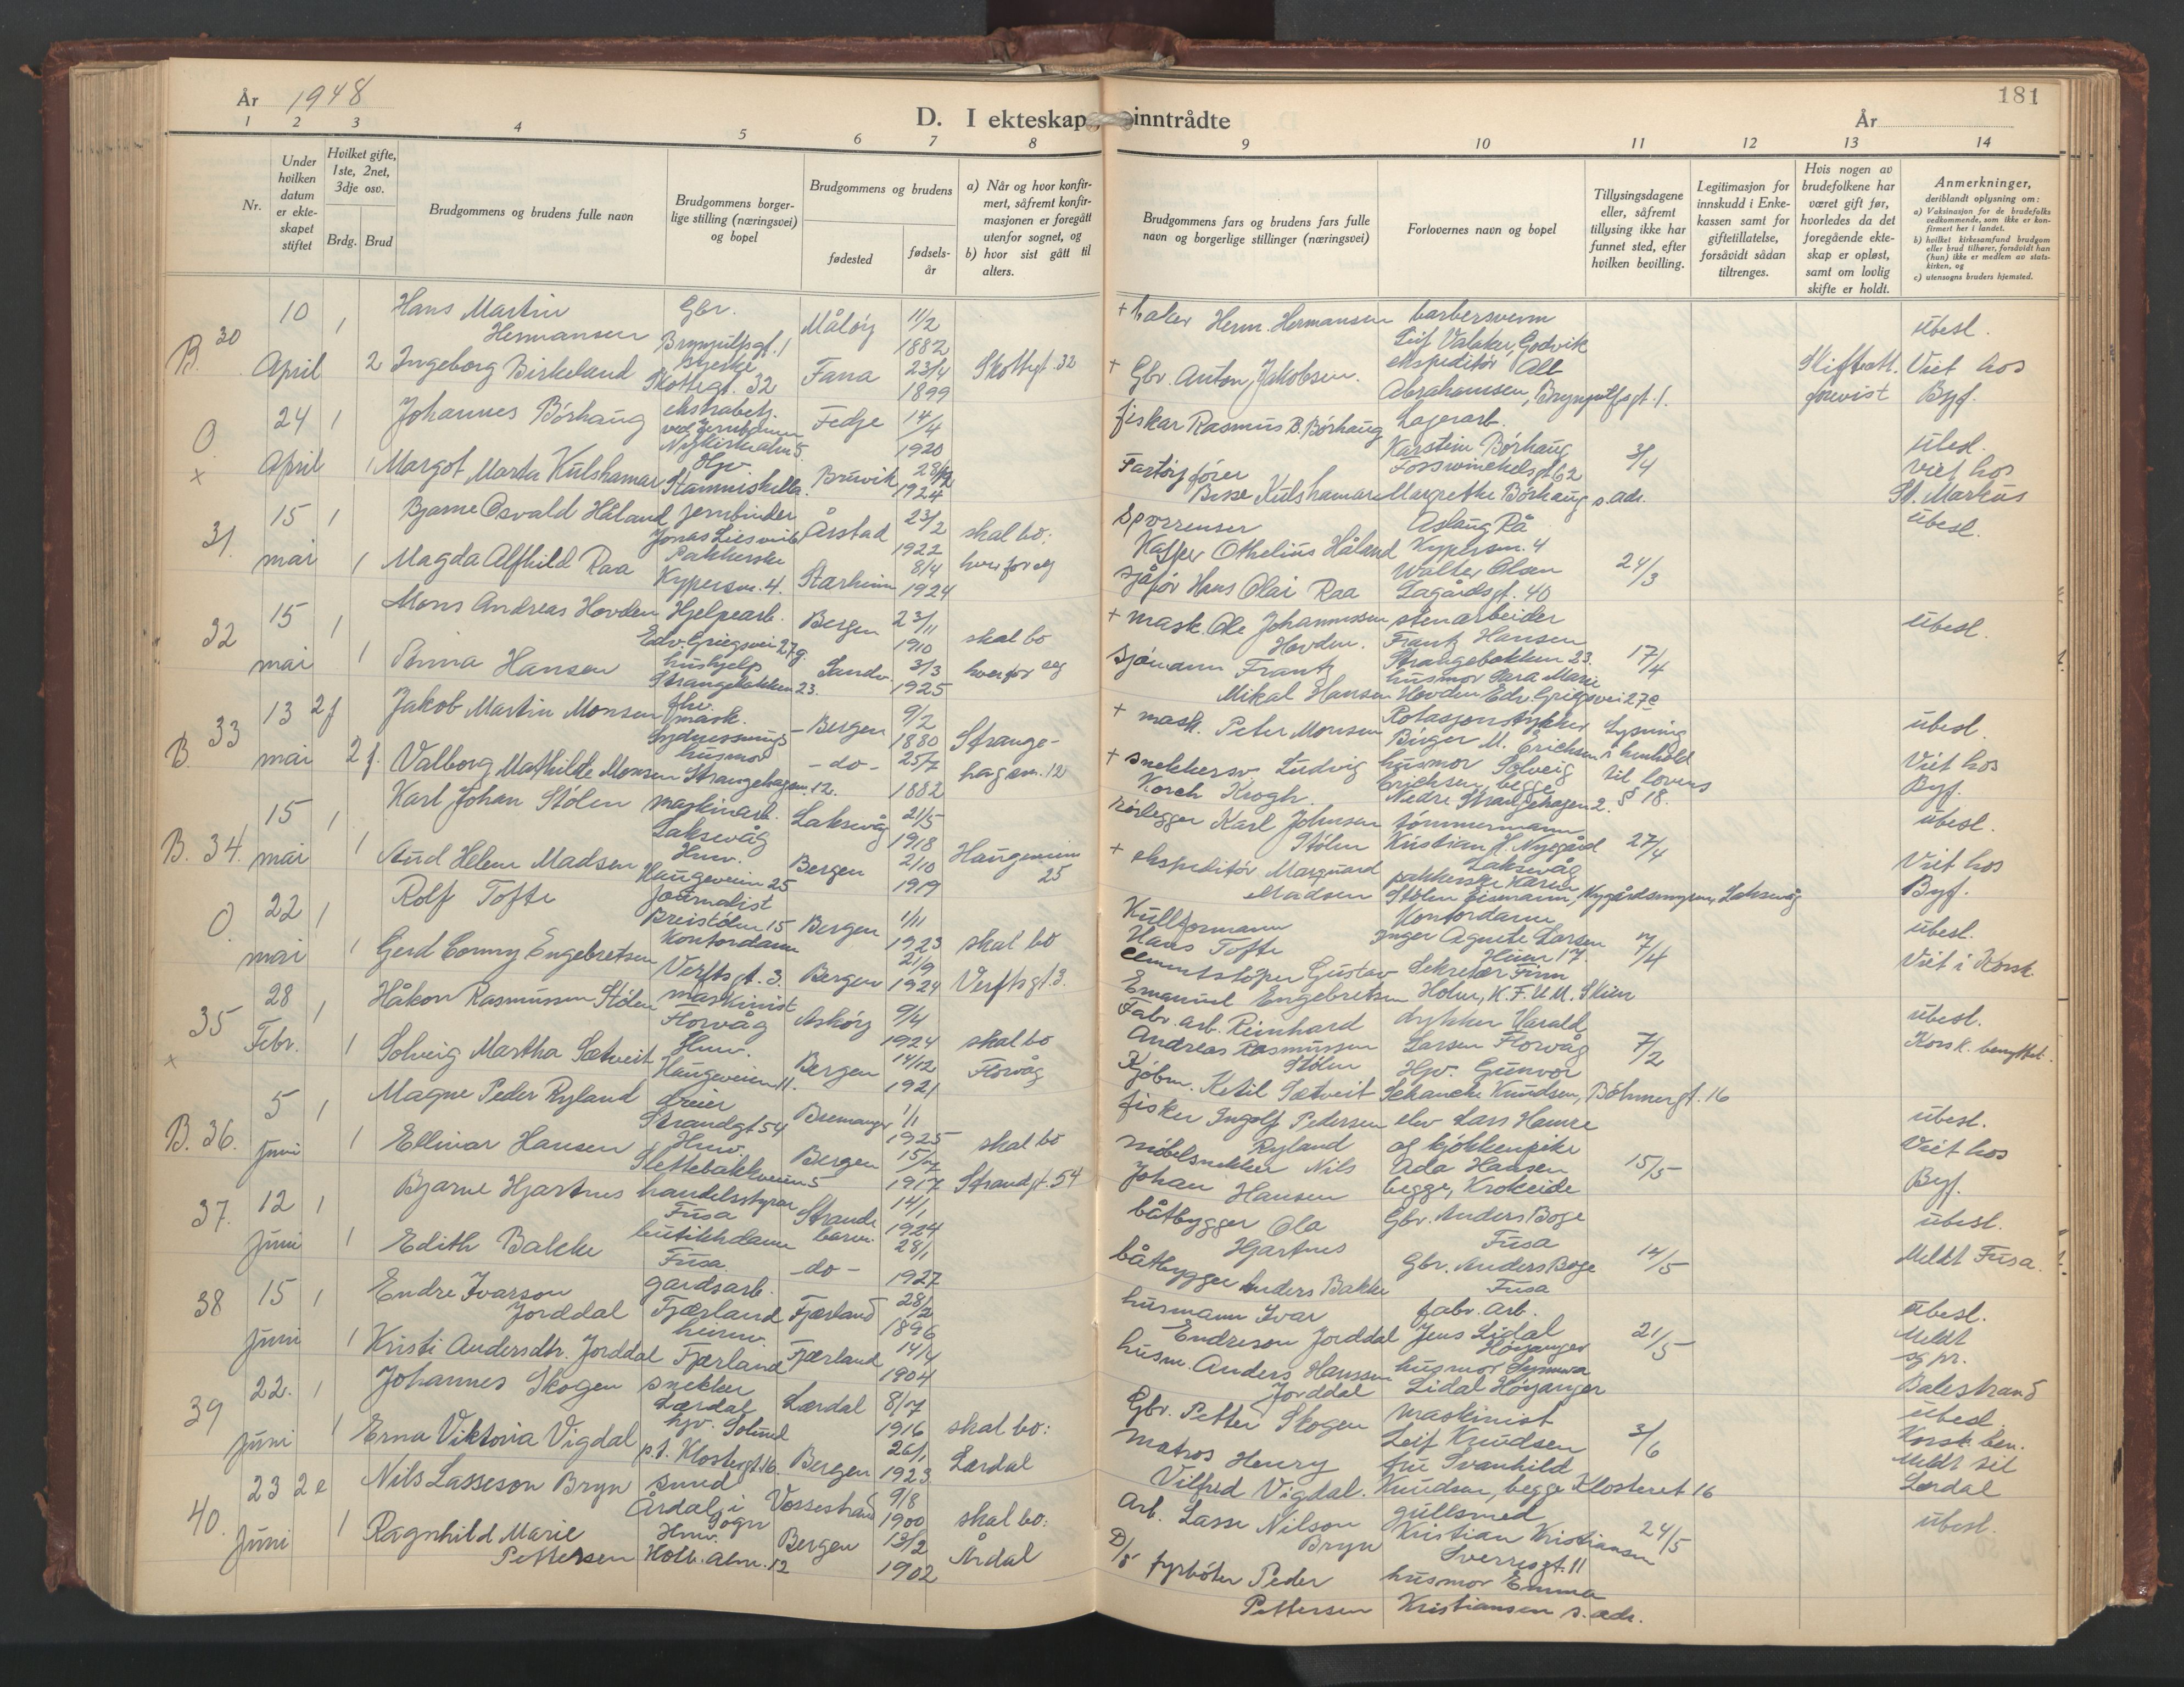 År 1948
D. I ekteskap inntrådte
År
181
1 2 3 4 5 6 7 8 9 10 11 12 13 14
Nr.
Under hvilken datum er ekteskapet stiftet
Hvilket gifte, 1ste, 2net, 3dje osv.
Brdg. Brud
Brudgommens og brudens fulle navn
Brudgommens borgerlige stilling (næringsvei) og bopel
Brudgommens og brudens
fødested
fødselsår
a) Når og hvor konfirmert, såfremt konfirmasjonen er foregått utenfor sognet, og
b) hvor sist gått til alters.
Brudgommens fars og brudens fars fulle navn og borgerlige stillinger (næringsvei)
Forlovernes navn og bopel
Tillysingsdagene eller, såfremt tillysing ikke har funnet sted, efter hvilken bevilling.
Legitimasjon for innskudd i Enkekassen samt for giftetillatelse, forsåvidt sådan tiltrenges.
Hvis nogen av brudefolkene har været gift før, hvorledes da det foregående ekteskap er opløst, samt om lovlig skifte er holdt.
Anmerkninger, deriblandt oplysning om:
a) Vaksinasjon for de brudefolks vedkommende, som ikke er konfirmert her i landet.
b) hvilket kirkesamfund brudgom eller brud tilhører, forsåvidt han (hun) ikke er medlem av statskirken, og
c) utensogns bruders hjemsted.
B. 30
10 April
1 Hans Martin Hermansen Gbr. Brynjulfsgt. 1 Måløy 11/2 1882
2 Ingeborg Birkeland Skottegt. 32 Fana 23/4 1899 Skottegt. 32
+ baker Herm. Hermansen
+ Gbr. Anton Jakobsen.
barbersvenn Leif Valaker, Godvik
ekspeditør Alb Abrahamsen, Brynjulfsgt. 1.
Skifteatt. forevist
ubesl. Viet hos Byf.
O. x
24 April
1 Johannes Børhaug ekstrabetj. ved Jernbanen Nykirkealm 5. Fedje 14/4 1920
1 Margot Marta Kulshamar Hjv. Bruvik 28/12 1924
fisker Rasmus B. Børhaug
Fartøyfører Kulshamar
Lagerarb. Karstein Børhaug Fosswinckelsgt 62
Margrethe Børhaug s. adr.
3/4
ubesl. viet hos St. Markus
31.
15 mai
1 Bjarne Osvald Håland jernbinder Årstad 23/2 1922
1 Magda Alfhild Raa Pakkerske Kypersm. 4. Stårheim 8/4 1924
skal bo: hver for seg
Kasper Othelius Håland
sjåfør Hans Olai Raa
Aslaug Rå Kypersm. 4
Walter Olsen Lagårdsgt. 40
24/3
ubesl.
32
15 mai
1 Mons Andreas Hovden Hjelpearb. Edv. Griegsvei 27 g. Bergen 23/11 1910
1 Anna Hansen hushjelp Strangebakken 23. Sandv. 3/3 1925
skal bo hver for seg
+ mask. Ole Johannessen Hovden.
sjømann Frantz Mikal Hansen
stenarbeider Frantz Hansen Strangebakken 23.
husmor Sara Marie Hovden Edv. Griegsvei 27 e
17/4
ubesl.
B. 33
13 mai
2 f Jakob Martin Monsen mask. Bergen 9/2 1880
2 f. Valborg Mathilde Monsen husmor Strangehagen. 12. - do - 25/7 1882
Strangehagen. 12
+ mask. Peter Monsen
+ snekkersv. Ludvig Korch Krogh.
Rotasjonstrykker Birger M. Erichsen
husmor Solveig Erichsen, begge Nedre Strangehagen 2.
Lysning i henhold til lovens § 18.
ubesl. Viet hos Byf.
B. 34.
15 mai
1 Karl Johan Stølen maskinarb. Laksevåg Laksevåg 21/5 1918
1 Aud Helene Madsen Huv. Haugeveien 25 Bergen 2/10 1919
Haugeveien 25
rørlegger Karl Johnsen Stølen
+ ekspeditør Marquard Madsen
tømmermann Kristian H. Nygård Laksevåg
pakkerske Karen Stølen Eismann, Nygårdsmyren, Laksevåg
27/4
ubesl. Viet hos Byf.
O.
22 mai
1 Rolf Tofte journalist Breistølen 15 Bergen 1/11 1923
1 Gerd Conny Engebretsen Kontordame Verftsgt. 3. Bergen 21/9 1924
skal bo Verftsgt. 3.
Kullformann Hans Tofte
cementstøper Gustav Emanuel Engebretsen
Kontordame Inger Agnete Larsen
Sekretær Finn Holm, K.F.U.M. Skien
7/4
ubesl. Viet i Korsk.
35 x
28 Febr.
1 Håkon Rasmussen Stølen maskinist Florvåg Askøy 9/4 1924
1 Solveig Martha Sætveit Huv. Haugeveien 11. Bergen 14/12 1921
skal bo Florvåg
Fabr. arb. Reinhard Andreas Rasmussen Stølen
Kjøbm. Ketil Sætveit
dykker Harald Larsen Florvåg
Hjv. Gunvor Schancke Knudsen, Bøhmergt. 16
7/2
ubesl. Korsk. benyttet.
B. 36.
5 juni
1 Magne Peder Ryland Strandgt 54 Bremanger 1/1 1925
1 Ellinor Hansen Huv. Slettebakkveien 5 Bergen 15/7 1917
skal bo Strandgt. 54
fisker Ingolf Pedersen Ryland
møbelsnekker Nils Johan Hansen
elev Lars Hamre og kjøkkenpike Ada Hansen begge, Krokeide
15/5
ubesl. Viet hos Byf.
37.
12 juni
1 Bjarne Hjartnes handelsstyrar Fusa Strandebarm 14/1 1924
1 Edith Bakke butikkdame Fusa. - do - 28/1 1927
båtbygger Ola Hjartnes
båtbygger Anders Bakke
Gbr. Anders Boge Fusa
Gbr. Anders Boge Fusa
14/5
ubesl. Meldt Fusa.
38
15 juni
1 Endre Ivarson Jorddal gardsarb. Fjærland Fjærland 28/2 1896
1 Kristi Andersdtr. Jorddal heimv. Fjærland Fjærland 14/4 1904
husmann Ivar Endreson Jorddal
husm. Anders Hansson Jorddal
fabr. arb. Jens Lidal Høyanger
husmor Synnva Lidal Høyanger
21/5
ubesl. Meldt sg pr. Balestrand
39
22. juni
1 Johannes Skogen snekker Lærdal Lærdal 8/7 1916
1 Erna Viktoria Vigdal hjv. Solund p.t. Klostergt. 16. Bergen 26/1 1923
skal bo: Lærdal
Gbr. Petter Skogen
Matros Henry Vilfred Vigdal.
Maskinist Leif Knudsen
fru Svanhild Knudsen, begge Klosteret 16
3/6
ubesl. Korsk. ben. Meldt til Lærdal
40.
23 juni
2 e Nils Lasseson Bryn smed Årdal i Sogn Vossestrand 9/8 1900
1 Ragnhild Marie Pettersen Huv. Holb. alm. 12 Bergen 13/2 1902
skal bo: Årdal
Arb. Lasse Nilson Bryn
D/5 fyrbøter Peder Pettersen
gullsmed Kristian Kristiansen Sverresgt. 11
husmor Emma Kristiansen s. adr.
24/5
ubesl.